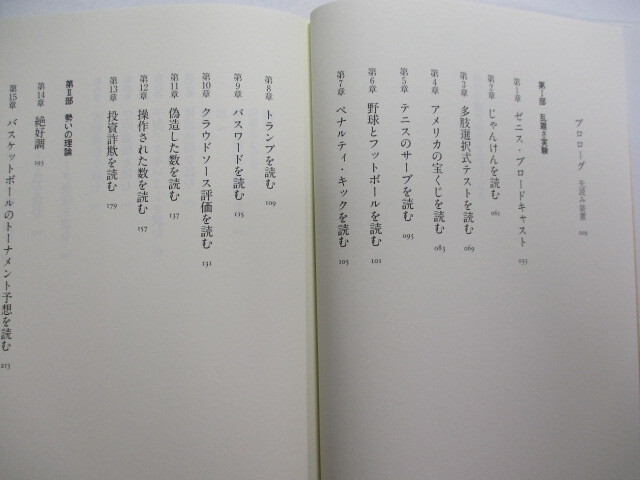 プロローグ 先読み装置 009
第Ⅰ部 乱雑さ実験
第1章 ゼニス・ブロードキャスト 033
第2章 じゃんけんを読む 061
第3章 多肢選択式テストを読む 069
第4章 アメリカの宝くじを読む 083
第5章 テニスのサーブを読む 095
第6章 野球とフットボールを読む 101
第7章 ペナルティ・キックを読む 105
第8章 トランプを読む 109
第9章 パスワードを読む 115
第10章 クラウドソース評価を読む 131
第11章 偽造した数を読む 137
第12章 操作された数を読む 157
第13章 投資詐欺を読む 179
第Ⅱ部 勢いの理論
第14章 絶好調 193
第15章 バスケットボールのトーナメント予想を読む 213